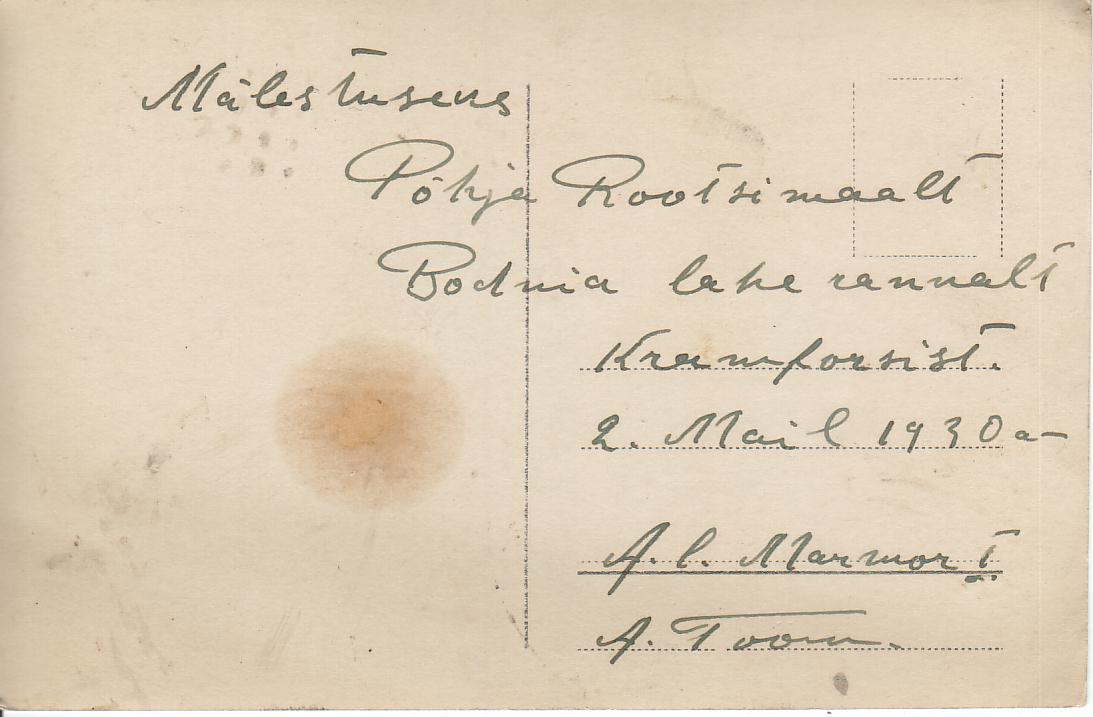 Mälestuseks
Põhja Rootsimaalt
Bodnia lahe rannalt
Kramforsist.
2. Mail 1930 a–
A. l. Marmor T
A. Toom.